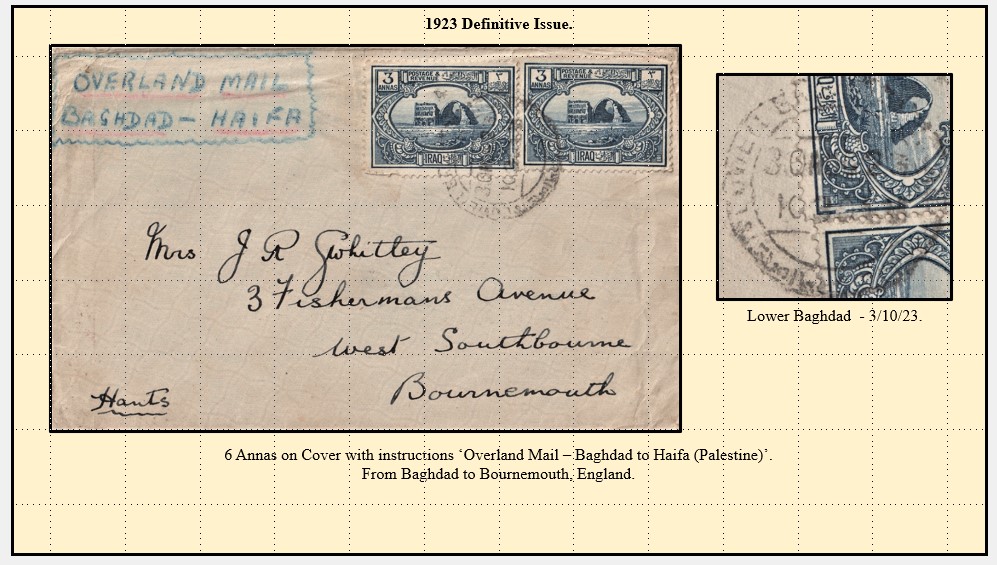 1923 Definitive Issue.
OVERLAND MAIL
BAGHDAD – HAIFA
3 POSTAGE & ٣
ANNAS REVENUE
IRAQ
3 POSTAGE & ٣
ANNAS REVENUE
IRAQ
Mrs J R Whitley
3 Fishermans Avenue
West Southbourne
Bournemouth
Hants
Lower Baghdad - 3/10/23.
6 Annas on Cover with instructions ‘Overland Mail – Baghdad to Haifa (Palestine)’.
From Baghdad to Bournemouth, England.